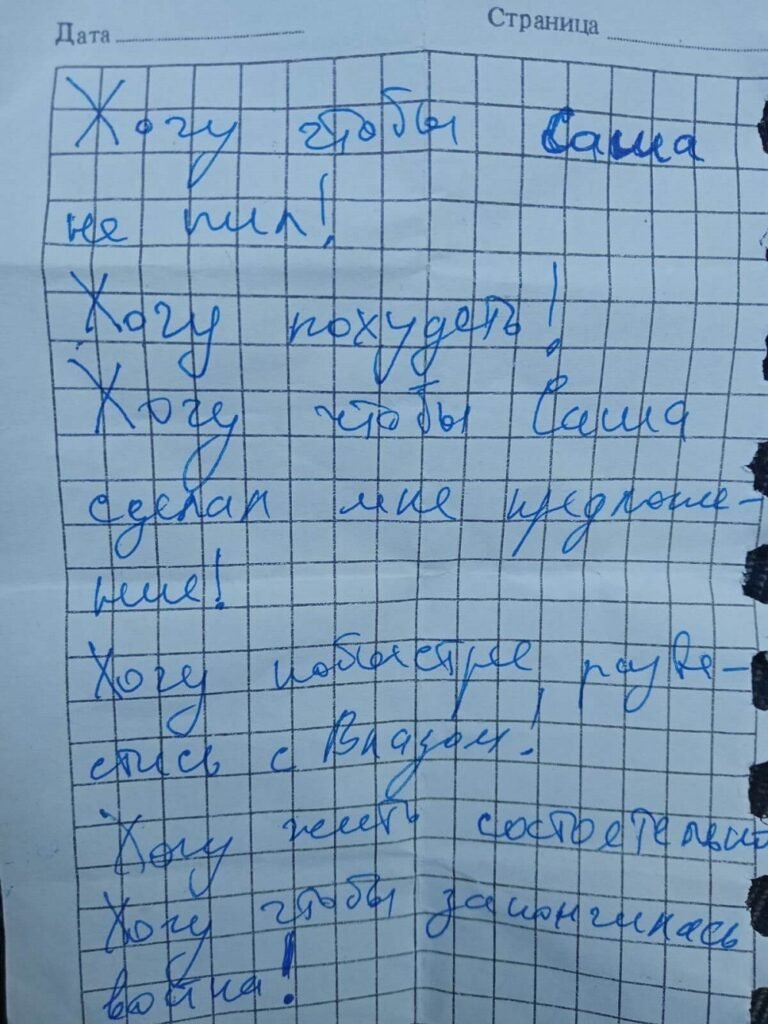 Дата
Страница
Хочу чтобы Саша
не пил!
Хочу похудеть!
Хочу чтобы Саша
сделал мне предложе-
ние!
Хочу побыстрее разве-
стись с Владом!
Хочу жить состоятельно
Хочу чтобы закончилась
война!